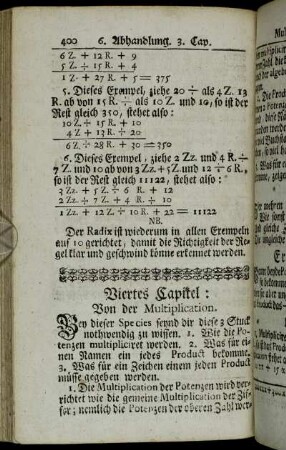 400 6. Abhandlung. 3. Cap.
6 Z. + 12 R. + 9
5 Z. ÷ 15 R. + 4
1 Z + 27 R + 5 = 375
5. Dieses Exempel, ziehe 20 ÷ als 4 Z. 13
R. ab von 15 R. ÷ als 10 Z. und 10, so ist der
Rest gleich 350, stehet also:
10 Z ÷ 15 R. + 10
4 Z + 13 R. ÷ 20
6 Z. ÷ 28 R. + 30 = 350
6. Dieses Exempel, ziehe 2 Zz. und 4 R. ÷
7 Z. und 10 ab von 3 Zz + 5 Z. und 12 ÷ 6 R.
so ist der Rest gleich 11122, stehet also:
3 Zz. + 5 Z ÷ 6 R. + 12
2 Zz ÷ 7 Z + 4 R. ÷ 10
1 Zz + 12 Z ÷ 10 R. + 22 = 11122
NB.
Der Radix ist wiederum in allen Exempeln
auf 10 gerichtet, damit die Richtigkeit der Re-
gel klar und geschwind könne erkennet werden.
Viertes Capitel:
Von der Multiplication.
Bey dieser Species seynd dir diese 3 Stuck
nothwendig zu wissen. 1. Wie die Po-
tenzen multipliciret werden. 2. Was für ei-
nen Namen ein jedes Product bekomme.
3. Was für ein Zeichen einem jeden Product
müsse gegeben werden.
1. Die Multiplication der Potenzen wird ver-
richtet wie die gemeine Multiplication der Zif-
fer; nemlich die Potenzen der oberen Zahl wer-